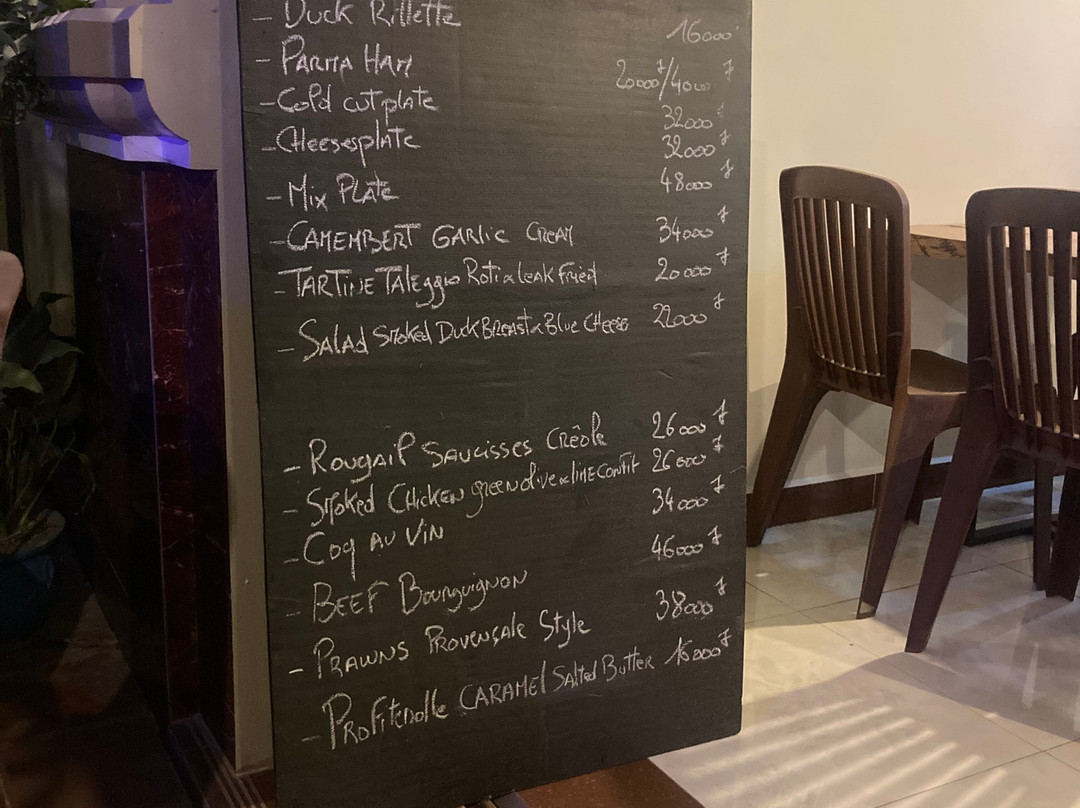 - Duck Rillette 16000
- PARMA HAM 20000/40000
- Cold cut plate 32000
- Cheesesplate 32000
- Mix PLATE 48000
- CAMEMBERT GARLIC CREAM 34000
- TARTINE TALEGGIO Roti & leak Fried 20000
- SALAD SMOKED DUCK BREAST & BLUE CHEESE 22000
- ROUGAIL SAUCISSES CRÉOLE 26000
- SMOKED CHICKEN green olive & lime confit 26000
- COQ AU VIN 34000
- BEEF Bourguignon 46000
- PRAWNS PROVENÇALE Style 38000
- PROFITEROLLE CARAMEL Salted Butter 15000